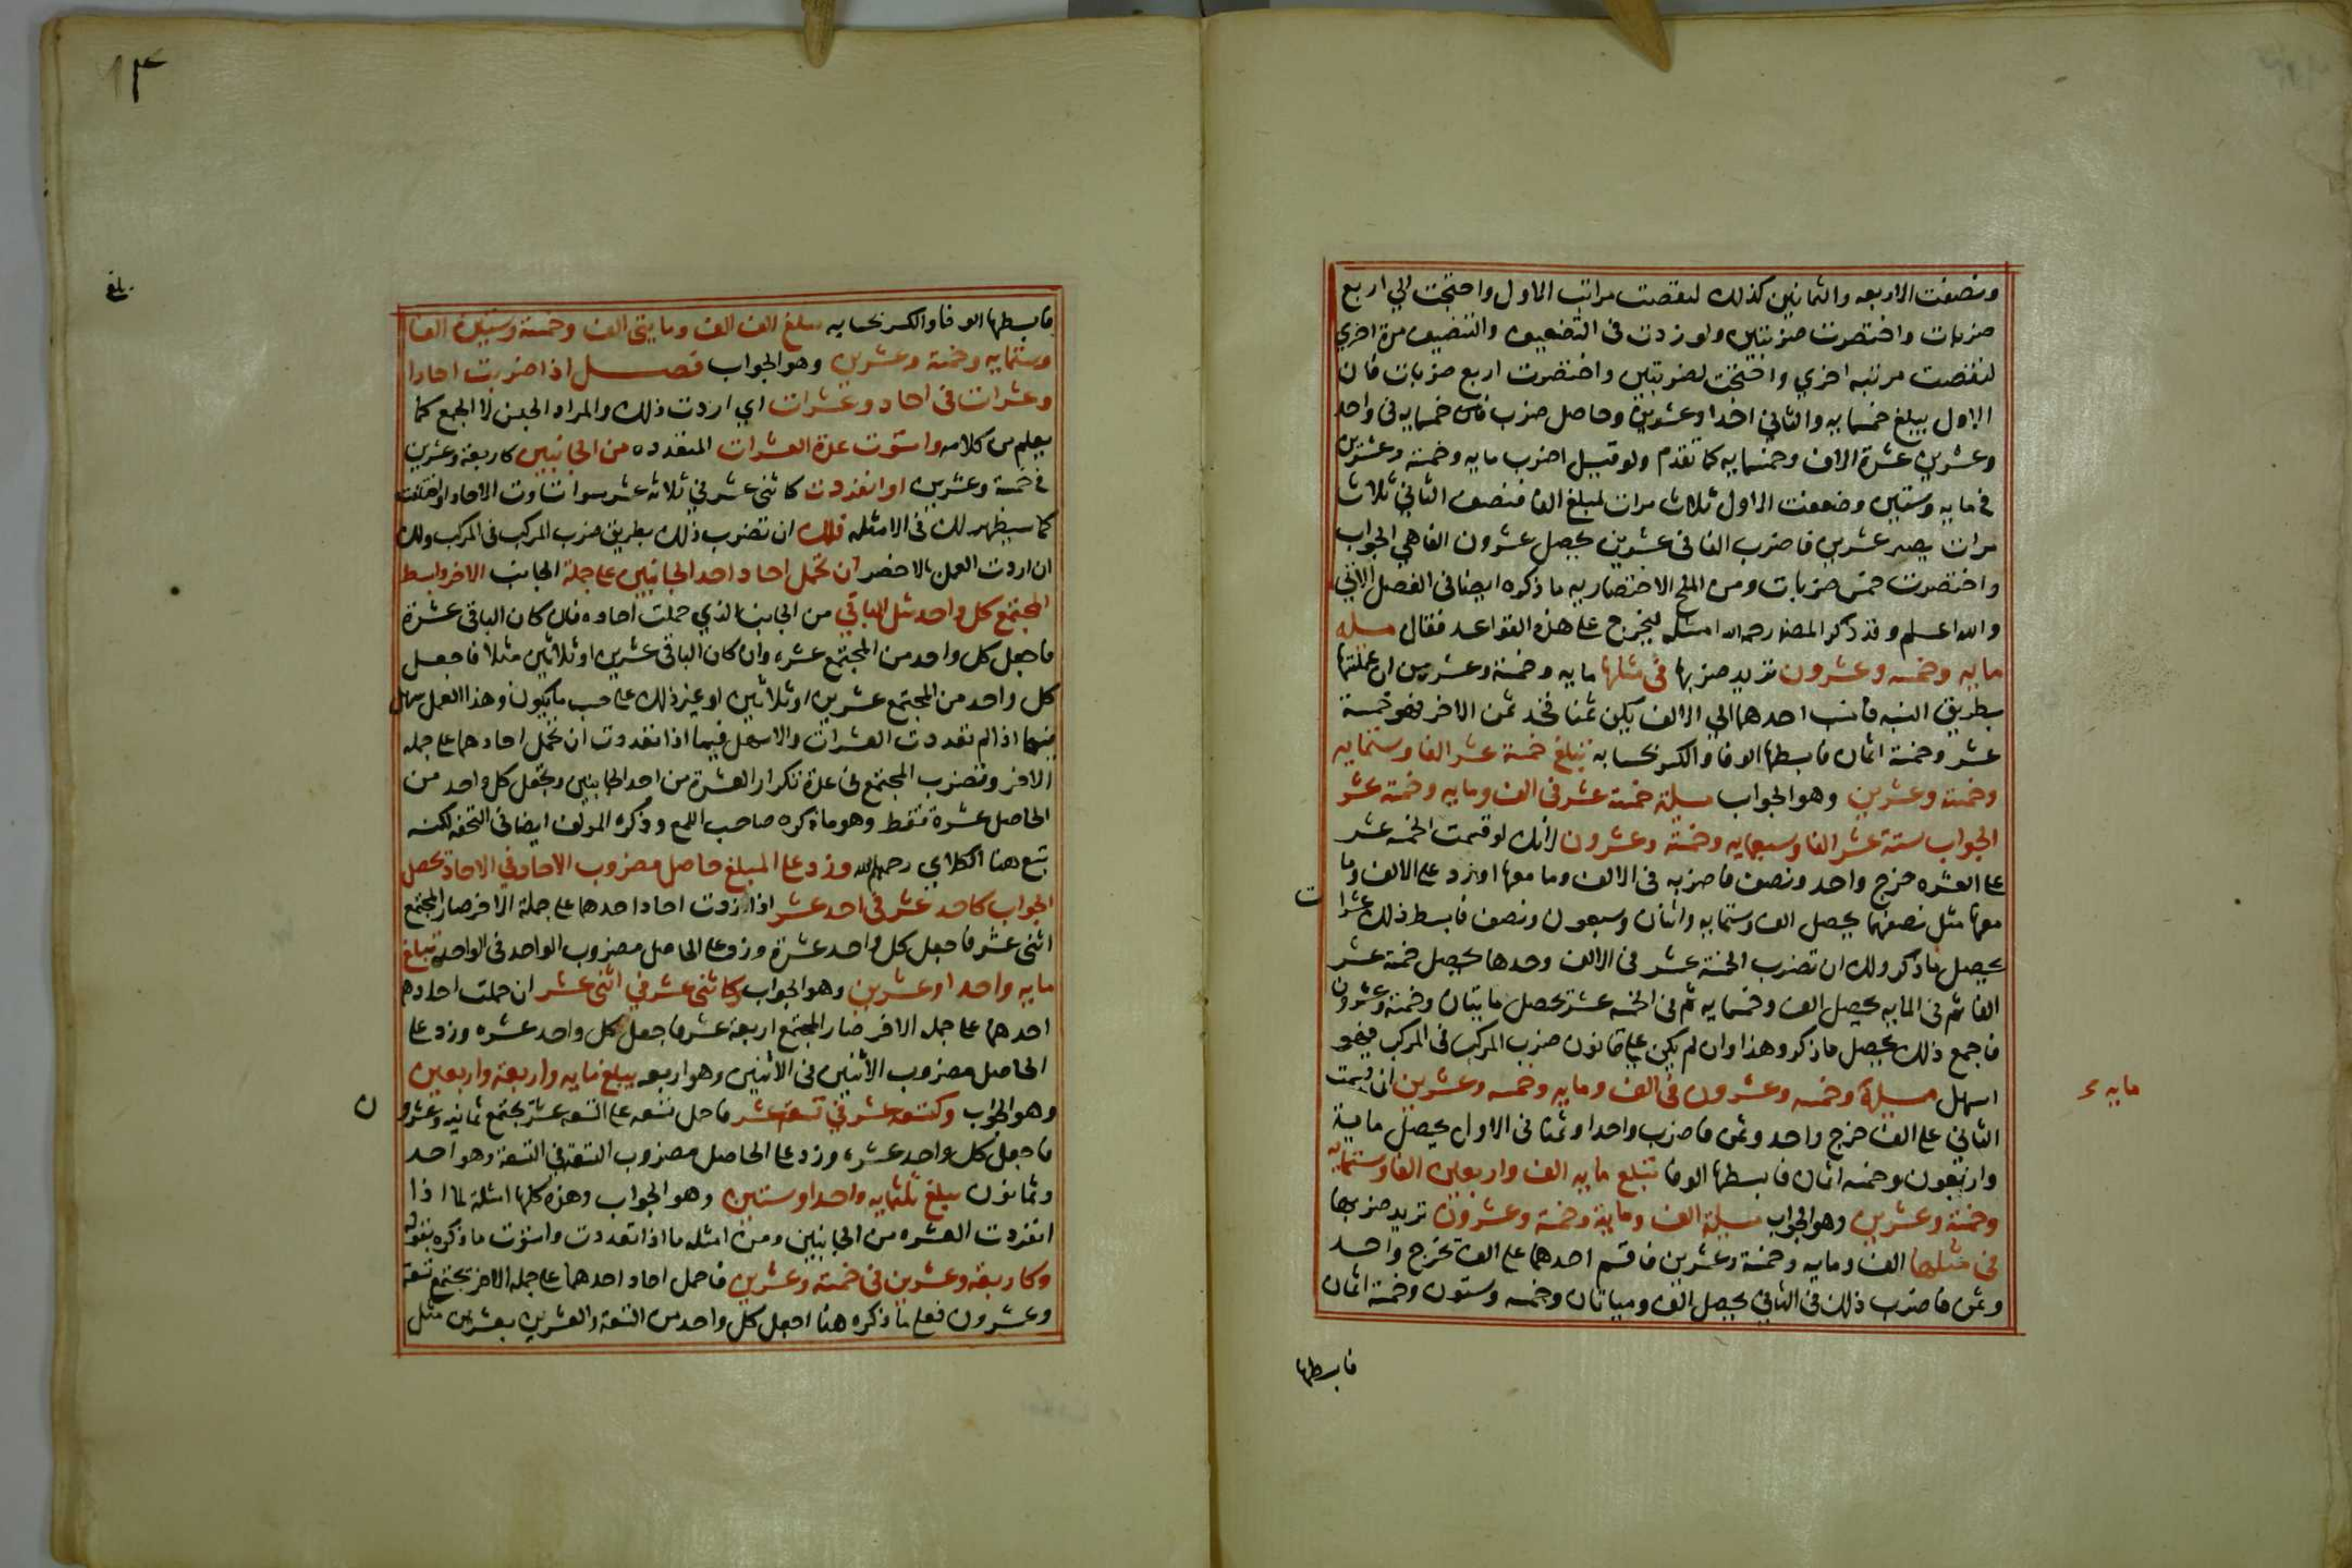 ونصفت الاربعه والثمانين كذلك لنقصت مراتب الاول واحتجت الي اربع
ضربات واختصرت ضربتين ولو زدت في التضعيف والتنصيف مرة اخري
لنقصت مرتبه اخري واحتجت لضربتين واختصرت اربع ضربات فان
الاول يبلغ خمسمايه والثاني احدا وعشرين وحاصل ضرب خمسمايه في واحد
وعشرين عشرة الاف وخمسمايه كما تقدم ولو قيل اضرب مايه وخمسة وعشرين
في مايه وستين وضعفت الاول ثلاث مرات لبلغ الفا فنصف الثاني ثلاث
مرات يصير عشرين فاضرب الفا في عشرين يحصل عشرون الفا هي الجواب
واختصرت خمس ضربات ومن الملح الاختصاريه ما ذكره ايضا في الفصل الاتي
والله اعلم وقد ذكر المصنف رحمه الله امثله تتخرج على هذه القواعد فقال مسله
مايه وخمسه وعشرون تريد ضربها في مثلها مايه وخمسة وعشرين ان عملتها
بطريق النسبه فانسب احدهما الي الالف يكن ثمنا فخد ثمن الاخر فهو خمسة
عشر وخمسة اثمان فابسطها الوفا والكسر بحسابه تبلغ خمسة عشر الفا وستمايه
وخمسة وعشرين وهو الجواب مسيلة خمسة عشر في الف ومايه وخمسة عشر
الجواب ستة عشر الفا وسبعمايه وخمسة وعشرون لانك لو قسمت الخمسه عشر
على العشره خرج واحد ونصف فاضربه في الالف وما معها او زد على الالف وما
معها مثل نصفهما يحصل الف وستمايه واثنان وسبعون ونصف فابسط ذلك عشرا
ت
يحصل ما ذكر ولك ان تضرب الخمسة عشر في الالف وحدها يحصل خمسة عشر
الفا ثم في المايه يحصل الف وخمسمايه ثم في الخمسه عشر يحصل مايتان وخمسة وعشرون
فاجمع ذلك يحصل ما ذكر وهذا وان لم يكن على قانون ضرب المركب في المركب فهو
اسهل مسيلة وخمسه وعشرون في الف ومايه وخمسه وعشرين ان قسمت
مايه
الثاني على الف خرج واحد وثمن فاضرب واحدا وثمنا في الاول يحصل ماية
واربعون وخمسه اثمان فابسطها الوفا تبلغ مايه الف واربعين الفا وستمايه
وخمسة وعشرين وهو الجواب مسيلة الف ومايه وخمسة وعشرون تريد ضربها
في مثلها الف ومايه وخمسة وعشرين فاقسم احدهما على الف يخرج واحد
وثمن فاضرب ذلك في الثاني يحصل الف ومياتان وخمسه وستون وخمسة اثمان
فابسطها
١٣
بلغ
فابسطها الوفا والكسر بحسابه يبلغ الف الف ومايتي الف وخمسة وستين الفا
وستمايه وخمسة وعشرين وهو الجواب فصل اذا ضربت احادا
وعشرات في احاد وعشرات اي اردت ذلك والمراد الجنس لا الجمع كما
يعلم من كلامه واستوت عدة العشرات المتعدده من الجانبين كاربعة وعشرين
في خمسة وعشرين او انفردت كاثني عشر في ثلاثه عشر سوا تساوت الاحاد او اختلفت
كما سيظهر لك في الامثله فلك ان تضرب ذلك بطريق ضرب المركب في المركب ولك
ان اردت العمل بالاخصر ان تحمل احاد احد الجانبين على جملة الجانب الاخر وابسط
المجتمع كل واحد مثل الباقي من الجانب الذي حملت احاده فان كان الباقي عشرة
فاجعل كل واحد من المجتمع عشره وان كان الباقي عشرين او ثلاثين مثلا فاجعل
كل واحد من المجتمع عشرين او ثلاثين او غير ذلك على حسب ما يكون وهذا العمل سهل
فيما اذا لم تعددت العشرات والاسهل فيما اذا تعددت ان تحمل احادهما على جمله
الاخر وتضرب المجتمع في عدة تكرار العشرة من احد الجانبين وتجعل كل واحد من
الحاصل عشرة فقط وهو ما ذكره صاحب اللمع وذكره المولف ايضا في التحفه لكنه
تبع هنا الكلاي رحمهم الله وزد على المبلغ حاصل مضروب الاحاد في الاحاد يحصل
الجواب كاحد عشر في احد عشر اذا زدت احاد احدهما على جملة الاخر صار المجتمع
اثني عشر فاجعل كل واحد عشرة وزد على الحاصل مضروب الواحد في الواحد تبلغ
مايه واحدا وعشرين وهو الجواب وكاثني عشر في اثني عشر ان حملت احاد
احدهما على جمله الاخر صار المجتمع اربعة عشر فاجعل كل واحد عشره وزد على
الحاصل مضروب الاثنين في الاثنين وهو اربعه يبلغ مايه واربعة واربعين
وهو الجواب وكتسعه عشر في تسعة عشر فاحمل تسعه على التسعه عشر يجتمع ثمانيه وعشرو
ن
فاجعل كل واحد عشرة وزد على الحاصل مضروب التسعة في التسعة وهو احد
وثمانون يبلغ ثلثمايه واحدا وستين وهو الجواب وهذه كلها امثلة لما اذا
انفردت العشره من الجانبين ومن امثله ما اذا تعددت واستوت ما ذكره بقوله
وكاربعة وعشرين في خمسة وعشرين فاحمل احاد احدهما على جمله الاخر يجتمع تسعة
وعشرون فعلى ما ذكره هنا اجعل كل واحد من التسعة والعشرين بعشرين مثل